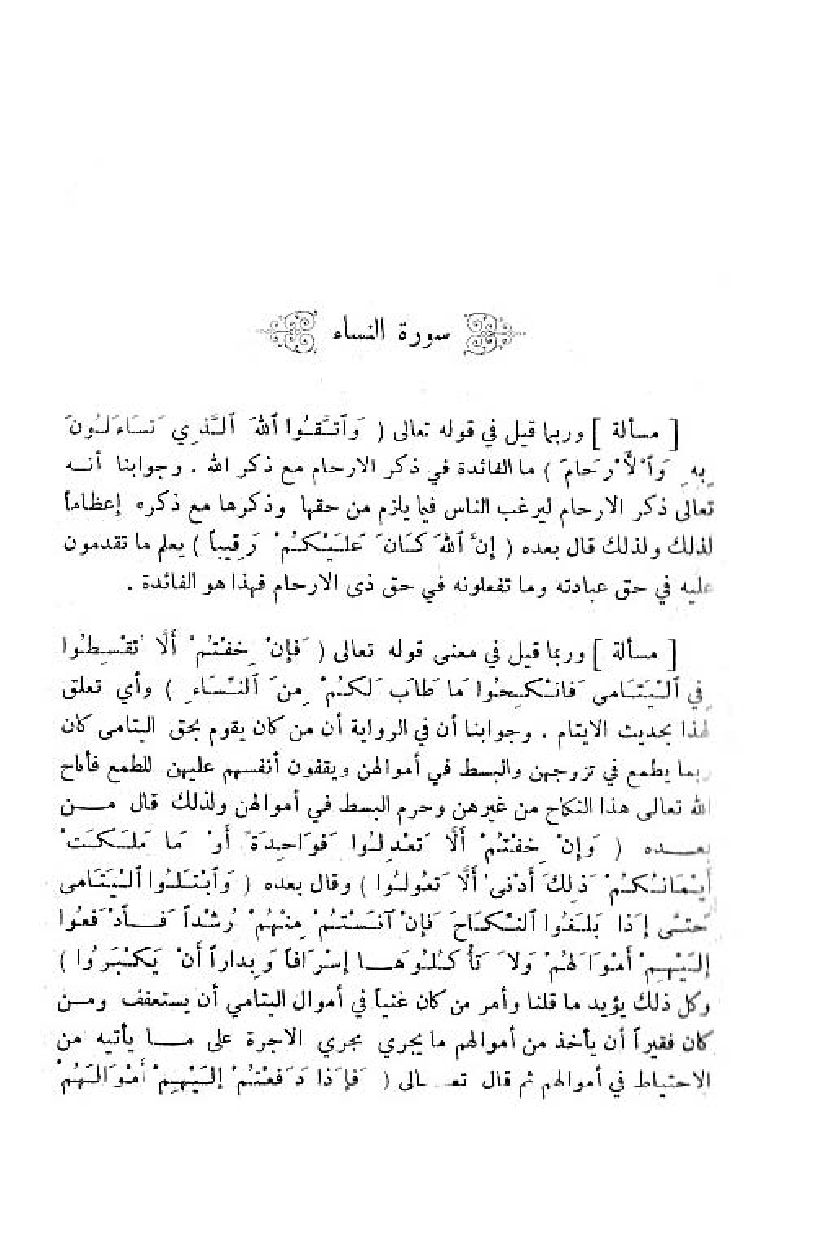 سورة النساء
[ مسألة ] وربما قيل في قوله تعالى ( وَٱتَّقُوا ٱللهَ ٱلَّذِي تَسَاءَلُونَ
بِهِ وَٱلْأَرْحَامَ ) ما الفائدة في ذكر الارحام مع ذكر الله . وجوابنا أنه
تعالى ذكر الارحام ليرغب الناس فيما يلزم من حقها وذكرها مع ذكره إعظاماً
لذلك ولذلك قال بعده ( إِنَّ ٱللهَ كَانَ عَلَيْكُمْ رَقِيباً ) يعلم ما تقدمون
عليه في حق عبادته وما تفعلونه في حق ذى الارحام فهذا هو الفائدة .
[ مسألة ] وربما قيل في معنى قوله تعالى ( فَإِنْ خِفْتُمْ أَلَّا تُقْسِطُوا
فِي ٱلْيَتَامى فَانْكِحُوا مَا طَابَ لَكُمْ مِنَ ٱلنِّسَاءِ ) وأي تعلق
لهذا بحديث الايتام . وجوابنا أن في الرواية أن من كان يقوم بحق اليتامى كان
ربما يطمع في تزوجهن والبسط في أموالهن ويقفون أنفسهم عليهن للطمع فأباح
الله تعالى هذا النكاح من غيرهن وحرم البسط في أموالهن ولذلك قال من
بعده ( وَإِنْ خِفْتُمْ أَلَّا تَعْدِلُوا فَوَاحِدَةً أَوْ مَا مَلَكَتْ
أَيْمَانُكُمْ ذَلِكَ أَدْنى أَلَّا تَعُولُوا ) وقال بعده ( وَٱبْتَلُوا ٱلْيَتَامى
حَتَّى إِذَا بَلَغُوا ٱلنِّكَاحَ فَإِنْ آنَسْتُمْ مِنْهُمْ رُشْداً فَادْفَعُوا
إِلَيْهِمْ أَمْوَالَهُمْ وَلَا تَأْكُلُوهَا إِسْرَافاً وَبِدَاراً أَنْ يَكْبَرُوا )
وكل ذلك يؤيد ما قلنا وأمر من كان غنياً في أموال اليتامي أن يستعفف ومن
كان فقيراً أن يأخذ من أموالهم ما يجري مجري الاجرة على ما يأتيه من
الاحتياط في أموالهم ثم قال تعالى ( فَإِذَا دَفَعْتُمْ إِلَيْهِمْ أَمْوَالَهُمْ